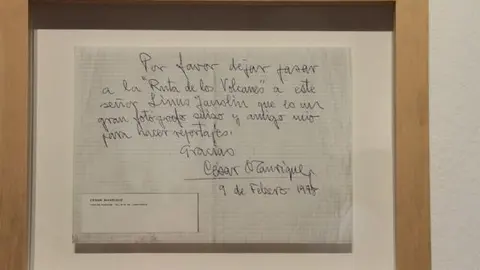 Por favor dejar pasar
a la "Ruta de los Volcanes" a este
señor Linus que es un
gran fotografo suizo y amigo mio
para hacer reportajes.
Gracias
César Manrique
9 de Febero
CESAR MANRIQUE